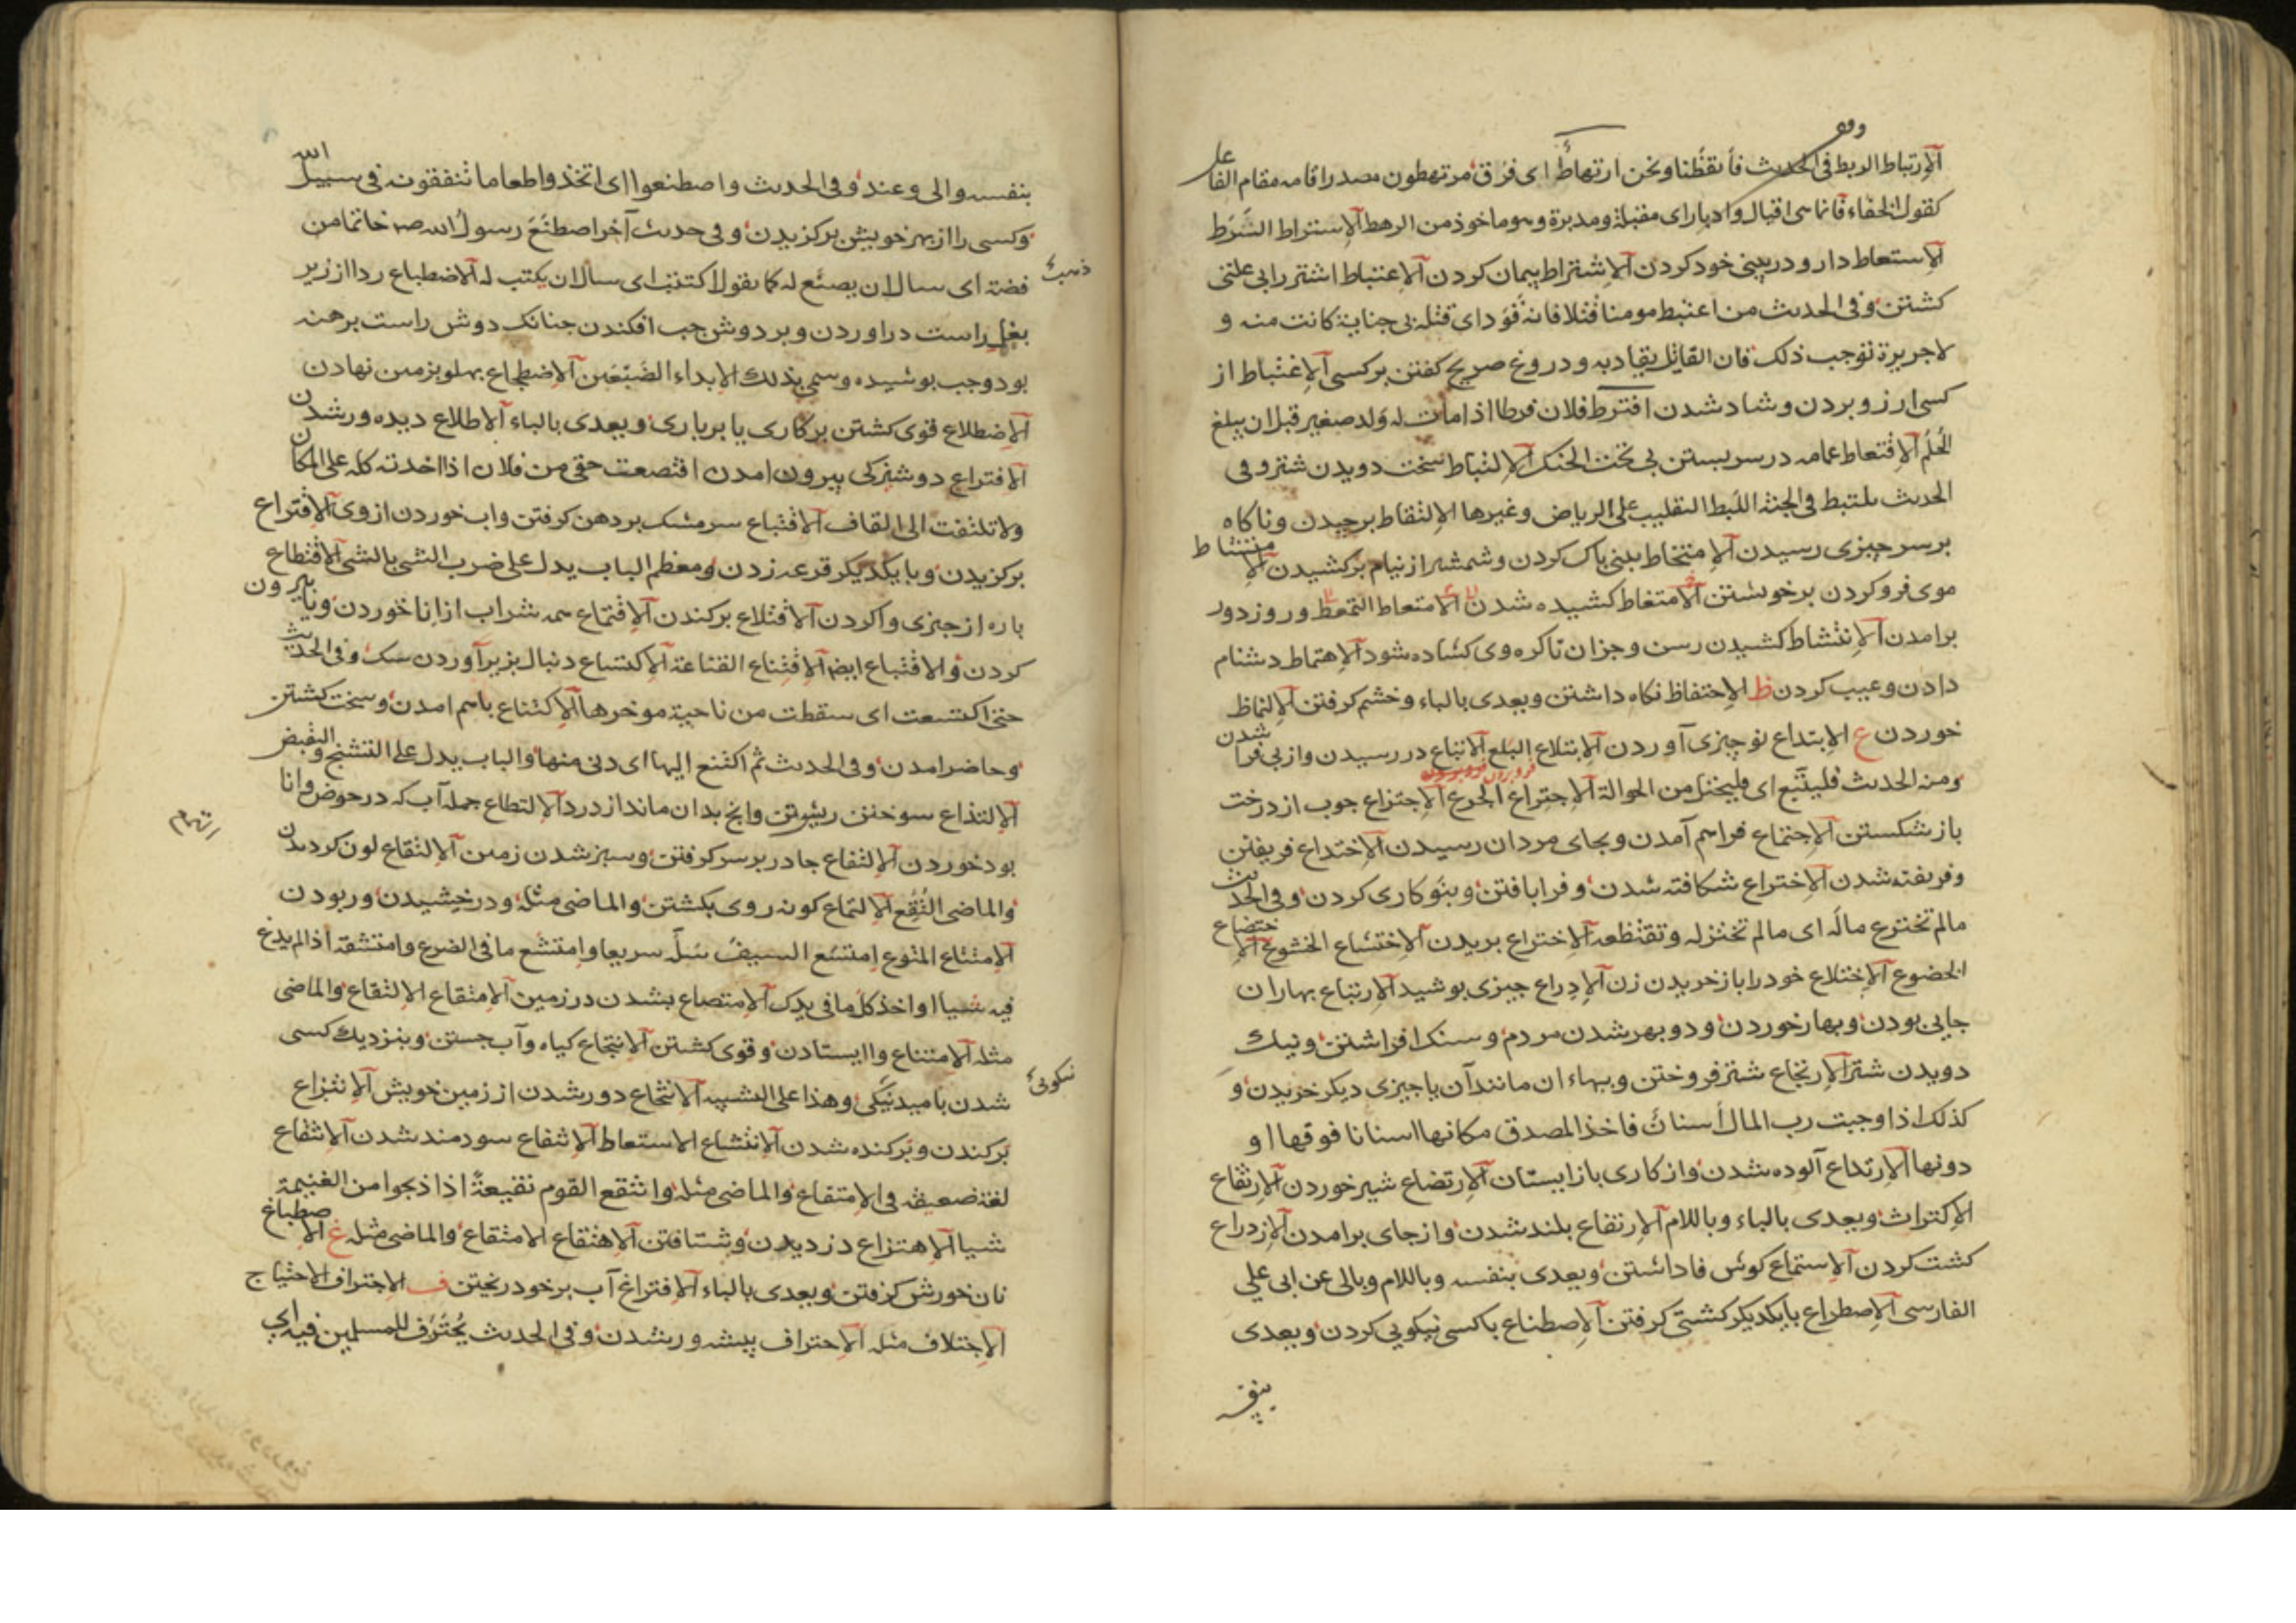 الارتباط الربط وفى الحديث فأيقظنا ونحن ارتهاط اى فرق مرتهطون مصدر اقامه مقام الفاعل
كقول الخنساء فانما هى اقبال وادبار اى مقبلة ومدبرة وهو ماخوذ من الرهط الاستراط السَّرَط
الاستعاط دارو در بينى خود كردن الاشتراط پيمان كردن الاعتباط اشتر را بى علتى
كشتن وفى الحديث من اعتبط مومنا قتلا فانه قَوَد اى قتله بى جناية كانت منه و
لا جريرة توجب ذلك فان القاتل يقاد به ودروغ صريح كفتن بر كسى الاغتباط از
كسى ارزو بردن و شاد شدن افترط فلان فرطا اذا مات له ولد صغير قبل ان يبلغ
الحُلُم الاقتعاط عمامه در سر بستن بى تحت الحنك الالتباط سخت دويدن شتر وفى
الحديث يلتبط فى الجنة اللبط التقليب على الرياض وغيرها الالتقاط برچيدن وناكاه
بر سر چيزى رسيدن الامتخاط بينى پاك كردن وشمشير از نيام بركشيدن الامتشاط
موى فرو كردن بر خويشتن الامتغاط كشيده شدن الامتعاط التمعط و روز دور
برامدن الانتشاط كشيدن رسن و جز ان تا كره وى كشاده شود الاهتماط دشنام
دادن وعيب كردن ظ الاحتفاظ نكاه داشتن ويعدى بالباء وخشم كرفتن الالتماظ
خوردن ع الابتداع نو چيزى آوردن الابتلاع البلع الاتباع در رسيدن واز پى فرا شدن
ومنه الحديث فليتّبع اى فليحتل من الحوالة الاجتراع الجرع الاجتزاع چوب از درخت
باز شكستن الاجتماع فراهم آمدن وبجاى مردان رسيدن الاختداع فريفتن
وفريفته شدن الاختراع شكافته شدن وفرا بافتن وبنو كارى كردن وفى الحديث
مالم تخترع ماله اى مالم تختزله وتقتطعه الاختزاع بريدن الاختشاع الخشوع الاختضاع
الخضوع الاختلاع خود را باز خريدن زن الادراع چيزى پوشيد الارتباع بهاران
جايى بودن وبهار خوردن و دو بهر شدن مردم و سنك افراشتن ونيك
دويدن شتر الارتجاع شتر فروختن وببهاء ان مانند آن يا چيزى ديكر خريدن و
كذلك اذا وجبت رب المال أسنان فاخذ المصدق مكانها اسنانا فوقها او
دونها الارتداع آلوده شدن واز كارى باز ايستان الارتضاع شير خوردن الارتفاع
الاكتراث ويعدى بالباء وباللام الارتفاع بلند شدن واز جاى برامدن الازدراع
كشت كردن الاستماع كوش فا داشتن ويعدى بنفسه وباللام وبالى عن ابى على
الفارسى الاصطراع با يكديكر كشتى كرفتن الاصطناع با كسى نيكويى كردن ويعدى
بنفسه
بنفسه والى وعند وفى الحديث واصطنعوا اى اتخذوا طعاما تنفقونه فى سبيل الله
وكسى را از بهر خويش بركزيدن وفى حديث آخر اصطنَعَ رسول الله صم خاتما من
ذهب
فضة اى سال ان يصنع له كما يقول اكتتب اى سال ان يكتب له الاضطباع ردا از زير
بغل راست در اوردن وبر دوش چپ افكندن چنانك دوش راست برهنه
بود وچپ پوشيده وسمى بذلك لابداء الضبعين الاضطجاع پهلو بزمين نهادن
الاضطلاع قوى كشتن بر كارى يا بر بارى ويعدى بالباء الاطلاع ديده ور شدن
الافتراع دوشيزكى بيرون امدن اقتصعت حقى من فلان اذا اخدته كله على المكان
ولا تلتفت الى القاف الاقتباع سر مشك بر دهن كرفتن واب خوردن از وى الاقتراع
بركزيدن وبا يكديكر قرعه زدن ومعظم الباب يدل على ضرب الشى بالشى الاقتطاع
پاره از چيزى وا كردن الاقتلاع بركندن الاقتماع همه شراب از انا خوردن وپا بيرون
كردن والاقتباع ايضا الاقتناع القناعة الاكتساع دنبال بزير آوردن سك وفى الحديث
حتى اكتسعت اى سقطت من ناحية موخرها الاكتناع باهم امدن وسخت كشتن
وحاضر امدن وفى الحديث ثم اكتنع اليها اى دنى منها والباب يدل على التشنج والتقبض
الالتذاع سوختن ريش وتن وانچ بدان ماند از درد الالتطاع جمله آب كه در حوض وانا
التهام
بود خوردن الالتفاع چادر بر سر كرفتن وسبز شدن زمين الالتقاع لون كرديدن
والماضى التُقِع الالتماع كونه روى بكشتن والماضى مثله ودرخشيدن وربودن
الامتتاع المتوع امتشع السيفَ سَلّه سريعا وامتشع ما فى الضرع وامتشقه اذا لم يدع
فيه شيا او اخذ كل ما فى يدك الامتصاع بشدن در زمين الامتقاع الالتقاع والماضى
مثله الامتناع وا ايستادن وقوى كشتن الانتجاع كياه وآب جستن وبنزديك كسى
نيكويى
شدن باميد نيكى وهذا على التشبيه الانتخاع دور شدن از زمين خويش الانتزاع
بركندن وبركنده شدن الانتشاع الاستعاط الانتفاع سودمند شدن الانتقاع
لغة ضعيفة فى الامتقاع والماضى مثله وانتقع القوم نقيعةً اذا ذبحوا من الغنيمة
شيا الاهتزاع دزديدن وشتافتن الاهتقاع الامتقاع والماضى مثله غ الاصطباغ
نان خورش كرفتن ويعدى بالباء الافتراغ آب بر خود ريختن ف الاجتراف الاحتياج
الاجتلاف مثله الاحتراف پيشه ور شدن وفى الحديث يُحْتَرَف للمسلمين فيه اى